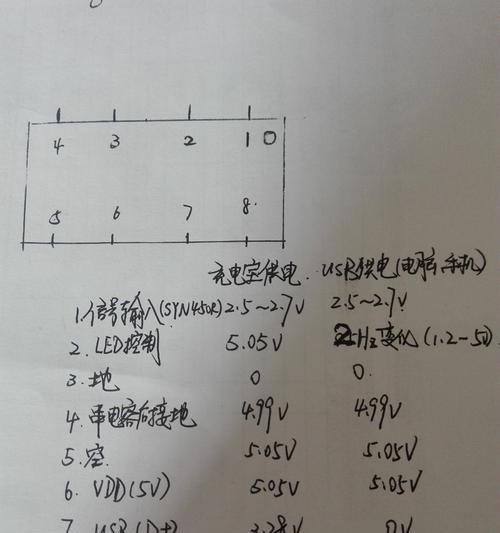 4 3 2 1
5 6 7 8
充电宝供电. USB供电(电脑、手机)
1.信号输入(SYN450R) 2.5~2.7V 2.5~2.7V
2. LED控制 5.05V 2Hz变化(1.2-5V).
3.地 0 0.
4.串电容后接地 4.99V 4.99V
5.空. 5.05V 5.05V
6. VDD(5V) 5.05V 5.05V
7. USB(D+ 3.28V 0V